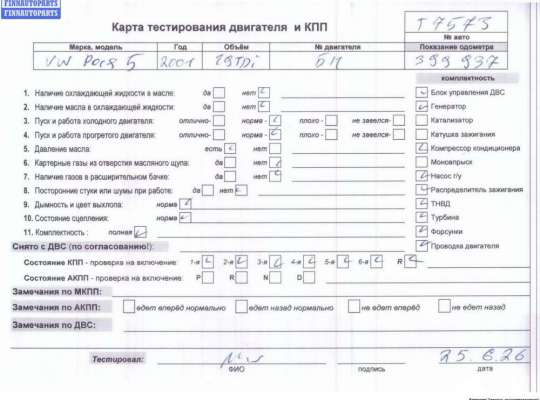 FINNAUTOPARTS
FINNAUTOPARTS
Карта тестирования двигателя и КПП
Т 7573
№ авто
Марка, модель Год Объём № двигателя Показание одометра
VW Рося 5 2001 1.9TDi БН 399 937
комплектность
1. Наличие охлаждающей жидкости в масле: да нет
Блок управления ДВС
2. Наличие масла в охлаждающей жидкости: да нет
Генератор
3. Пуск и работа холодного двигателя: отлично- норма - плохо - не завелся-
Катализатор
4. Пуск и работа прогретого двигателя: отлично- норма - плохо - не завелся-
Катушка зажигания
5. Давление масла: есть нет
Компрессор кондиционера
6. Картерные газы из отверстия масляного щупа: да нет
Моновпрыск
7. Наличие газов в расширительном бачке: да нет
Насос г/у
8. Посторонние стуки или шумы при работе: да нет
Распределитель зажигания
9. Дымность и цвет выхлопа: норма
ТНВД
10. Состояние сцепления: норма
Турбина
11. Комплектность : полная
Форсунки
Снято с ДВС (по согласованию!):
Проводка двигателя
Состояние КПП - проверка на включение: 1-я 2-я 3-я 4-я 5-я 6-я R
Состояние АКПП - проверка на включение: P R N D
Замечания по МКПП:
Замечания по АКПП: едет вперёд нормально едет назад нормально не едет вперёд не едет назад
Замечания по ДВС:
Тестировал: 25.6.26
ФИО подпись дата